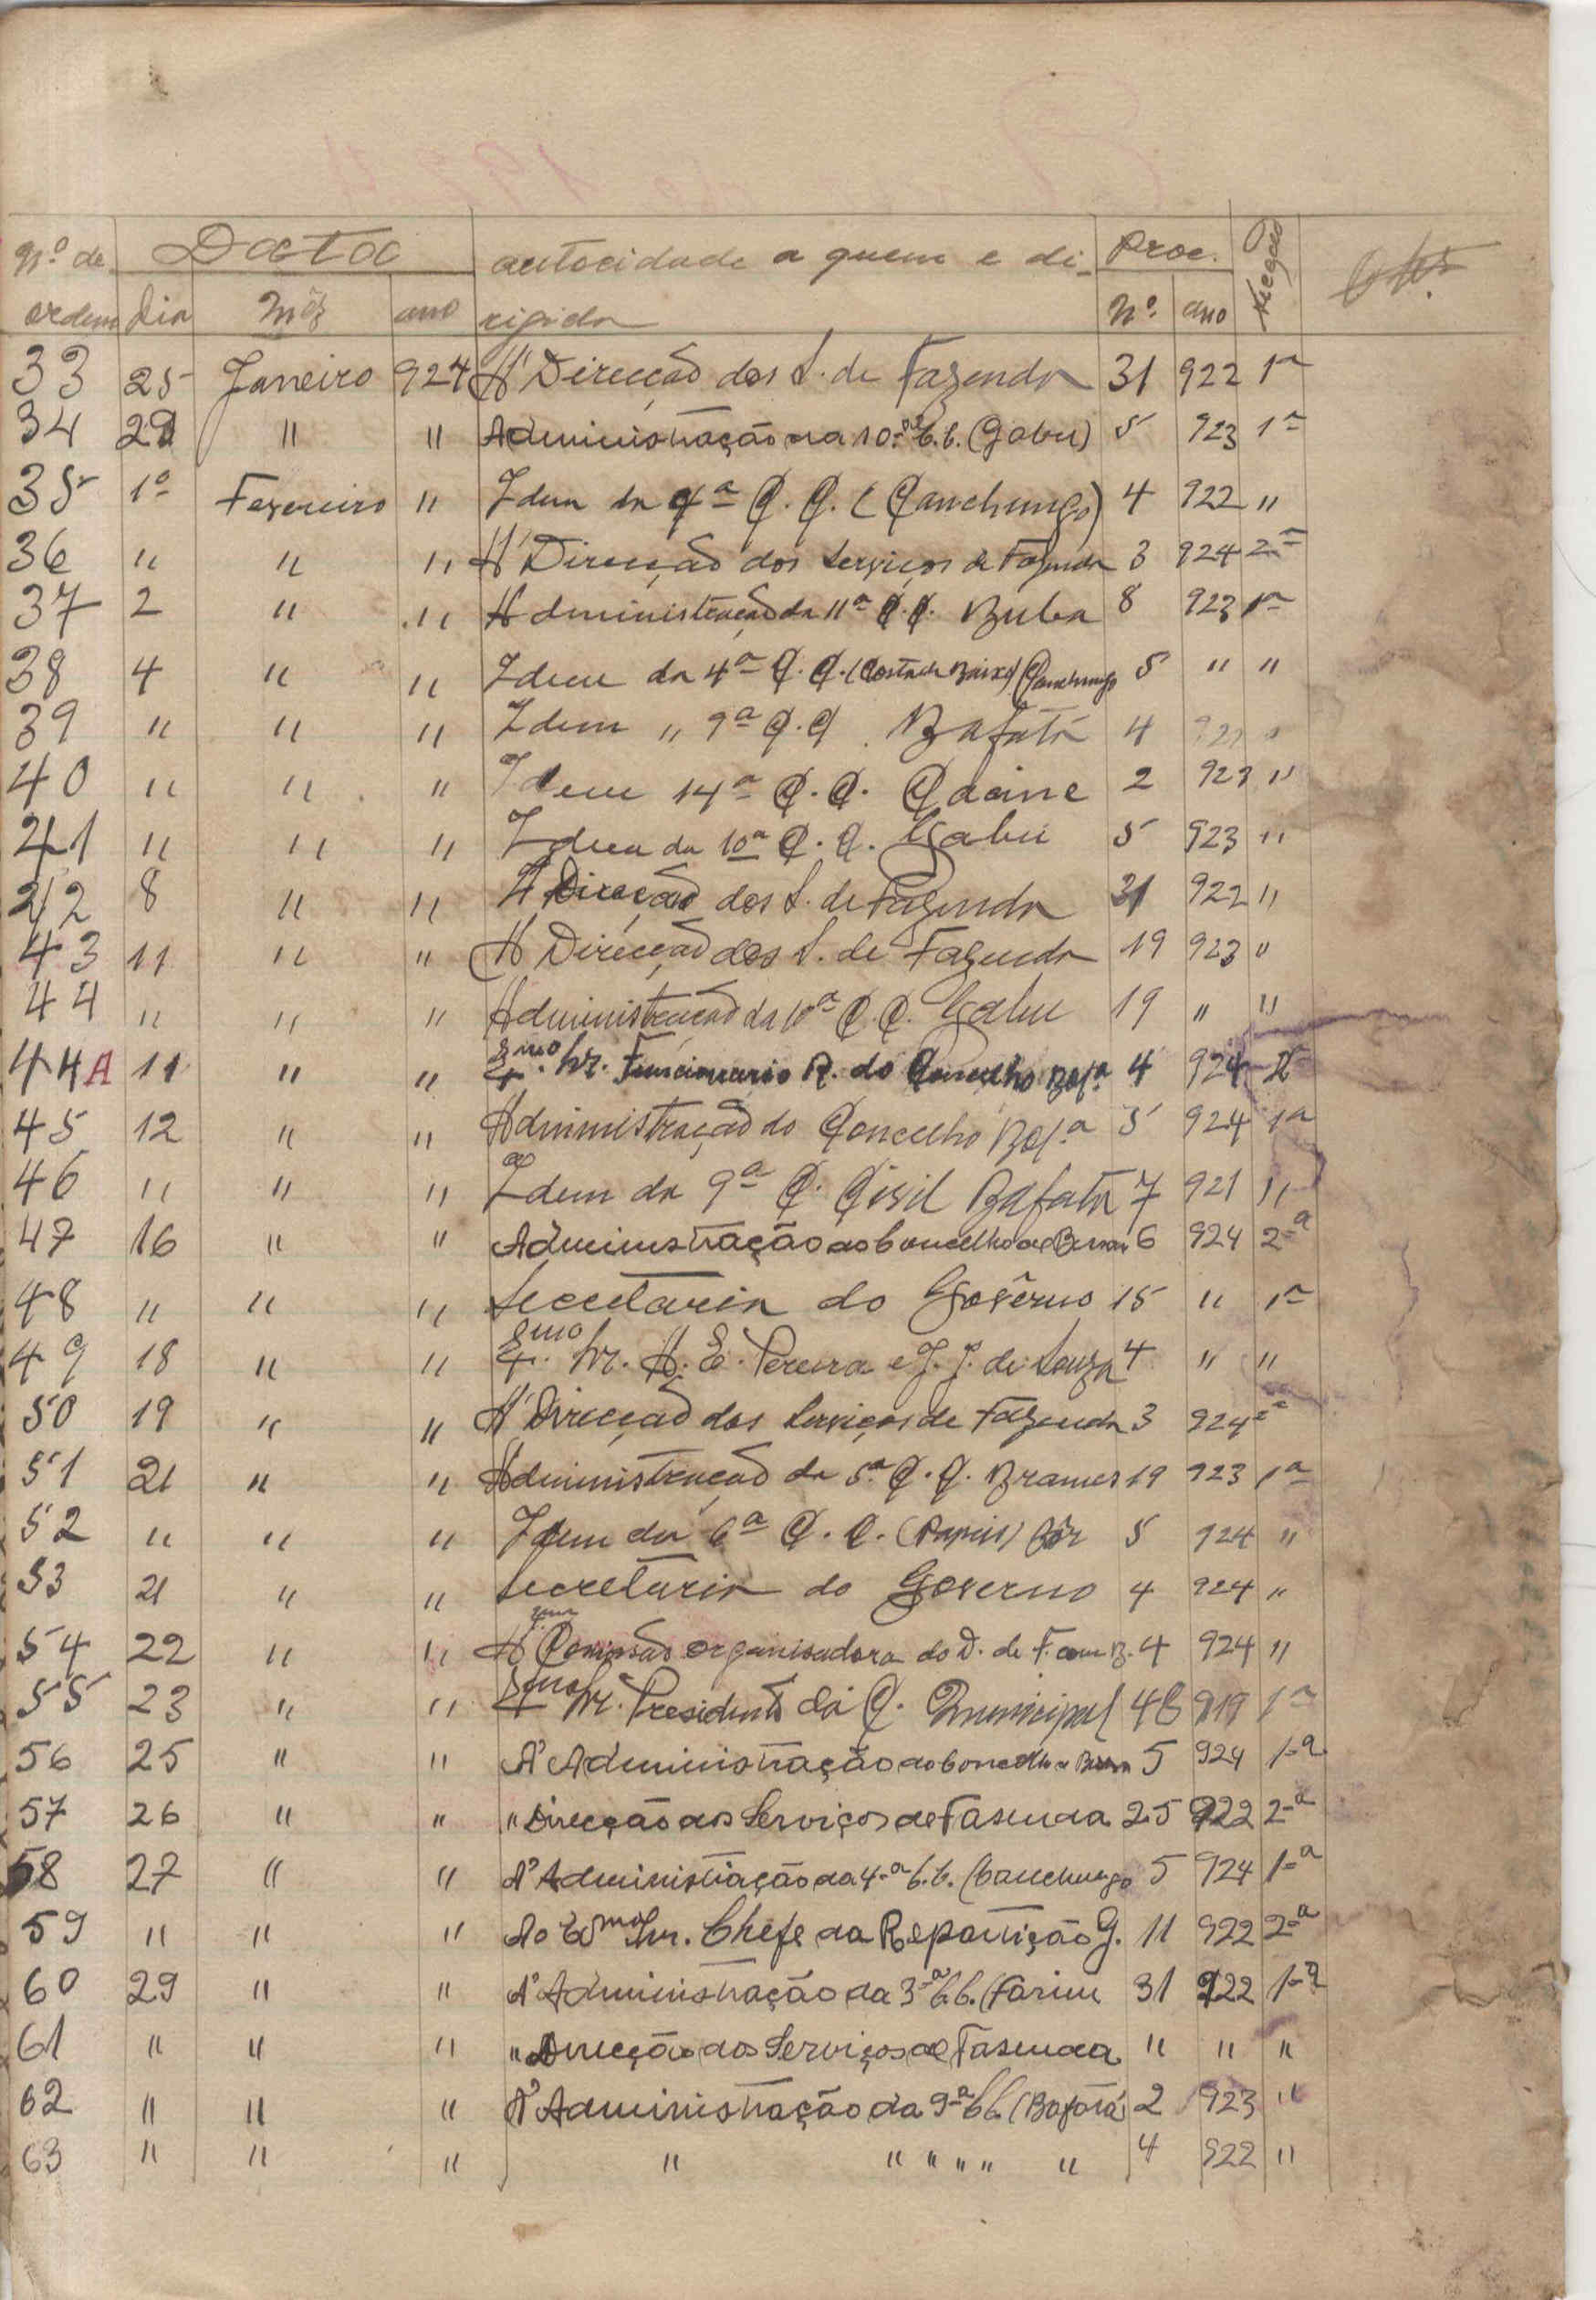 Nº de Data autoridade a quem e di- Proc. Negocio Obs.
ordem Dia Mês ano rigida Nº. ano
33 25 Janeiro 924 A' Direcção dos S. de Fazenda 31 922 1ª
34 29 " " Administração da 10.ª C.C. (Gabu) 5 923 1ª
35 1º Fevereiro " Idem da 4ª C. C. (Canchungo) 4 922 "
36 " " " A' Direcção dos Serviços de Fazenda 3 924 2ª
37 2 " " Administração da 11ª C.C. Buba 8 923 1ª
38 4 " " Idem da 4ª C. C. (Costa de Baixo) Canchungo 5 " "
39 " " " Idem " 9ª C.C. Bafatá 4 921 "
40 " " " Idem 14ª C.C. Cacine 2 923 "
41 " " " Idem da 10ª C. C. Gabu 5 923 "
42 8 " " A' Direcção dos S. de Fazenda 31 922 "
43 11 " " A' Direcção dos S. de Fazenda 19 923 "
44 " " " Administração da 10ª C.C. Gabu 19 " "
44A 11 " " Exmo. Sr. Funcionario R. do Concelho Bol.ª 4 924 2ª
45 12 " " Administração do Concelho Bol.ª 5 924 1ª
46 " " " Idem da 9ª C. Civil Bafatá 7 921 "
47 16 " " Administração do Concelho de Bissau 6 924 2.ª
48 " " " Secretaria do Govêrno 15 " 1ª
49 18 " " Exmo. Sr. A. E. Pereira e J. J. de Souza 4 " "
50 19 " " A' Direcção dos Serviços de Fazenda 3 924 2ª
51 21 " " Administração da 5ª C. C. Brames 19 923 1ª
52 " " " Idem da 6ª C. C. (Papeis) Bôr 5 924 "
53 21 " " Secretaria do Governo 4 924 "
54 22 " " A' Comissão organisadora do D. de F. em B. 4 924 "
55 23 " " Exmo Sr. Presidente da C. Municipal 48 919 1ª
56 25 " " A' Administração do Concelho de Bissau 5 924 1.ª
57 26 " " " Direcção dos Serviços de Fasenda 25 922 2.ª
58 27 " " A' Administração da 4.ª C.C. (Canchungo 5 924 1.ª
59 " " " Ao Exmo Snr. Chefe da Repartição G. 11 922 2.ª
60 29 " " A' Administração da 3.ª C.C. (Farim 31 922 1.ª
61 " " " " Direcção dos Serviços de Fasenda " " "
62 " " " A' Administração da 9.ª C.C. (Bafatá) 2 923 "
63 " " " " " " " " " 4 922 "